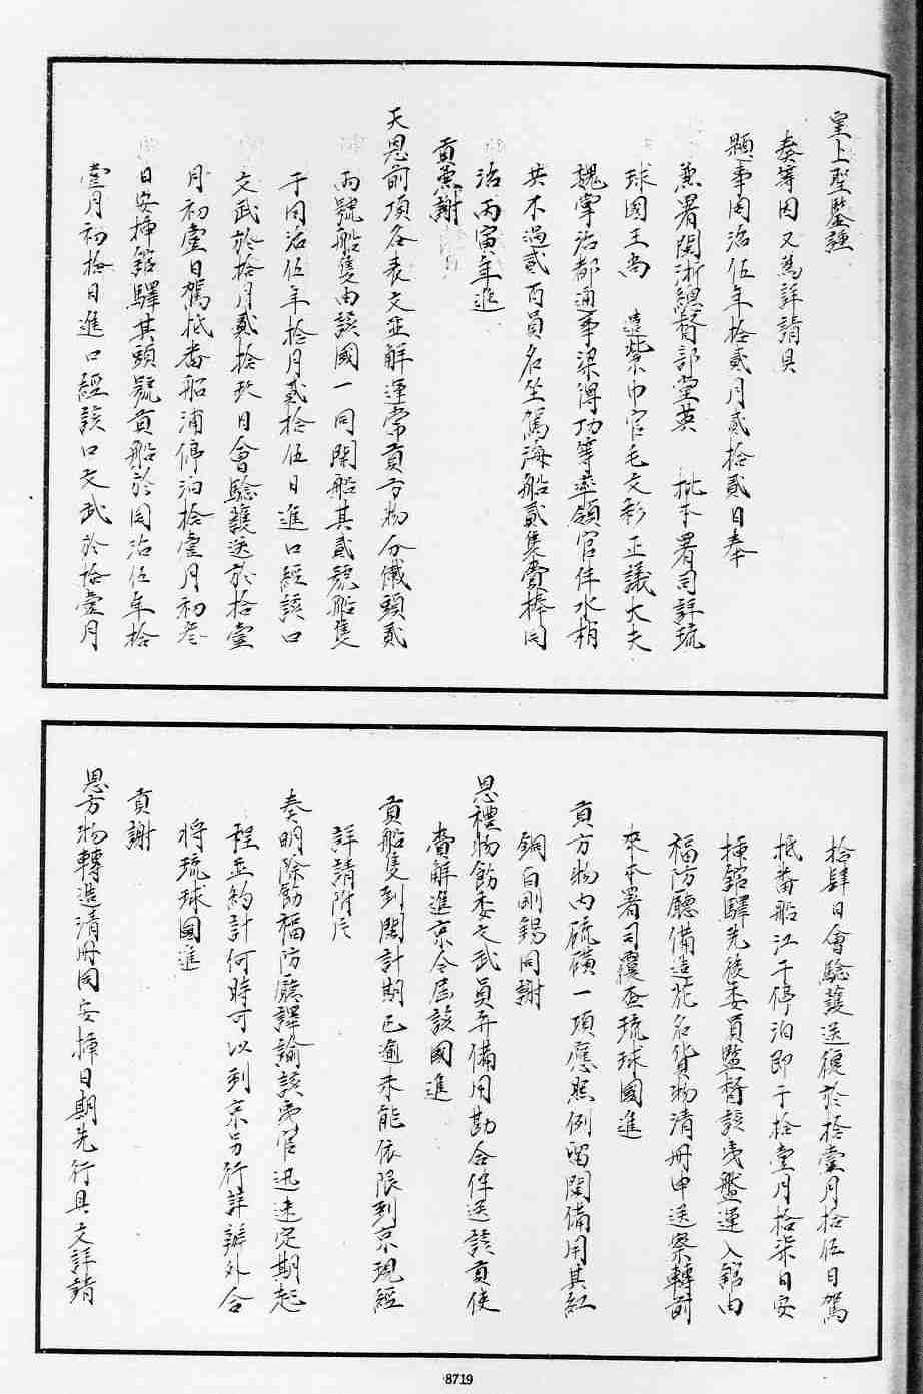 皇上聖鑒謹
奏等因又爲詳請具
題事同治伍年拾貳月貳拾貳日奉
兼署閩浙總督部堂英　批本署司詳琉
球國王尚　遣紫巾官毛文彩正議大夫
魏掌治都通事梁得功等率領官伴水梢
共不過貳百員名坐駕海船貳隻賫捧同
治丙寅年進
貢兼謝
天恩前項各表文並解運常貢方物分儎頭貳
兩號船隻由該國一同開船其貳號船隻
于同治伍年拾月貳拾伍日進口經該口
文武於拾月貳拾玖日會驗護送於拾壹
月初壹日駕抵番船浦停泊拾壹月初叁
日安揷館驛其頭號貢船於同治伍年拾
壹月初拾日進口經該口文武於拾壹月
拾肆日會驗護送復於拾壹月拾伍日駕
抵番船江干停泊即于拾壹月拾柒日安
揷館驛先後委員監督該夷盤運入館由
福防廳備造花名貨物清冊申送察轉前
來本署司覆查琉球國進
貢方物內硫磺一項應照例留閩備用其紅
銅白剛錫同謝
恩禮物飭委文武員弁備用勘合伴送該貢使
賫解進京今屆該國進
貢船隻到閩計期已逾未能依限到京現經
詳請附片
奏明除飭福防廳譯諭該夷官迅速定期起
程並約計何時可以到京另行詳辦外合
將琉球國進
貢謝
恩方物轉造清冊同安揷日期先行具文詳請
8719